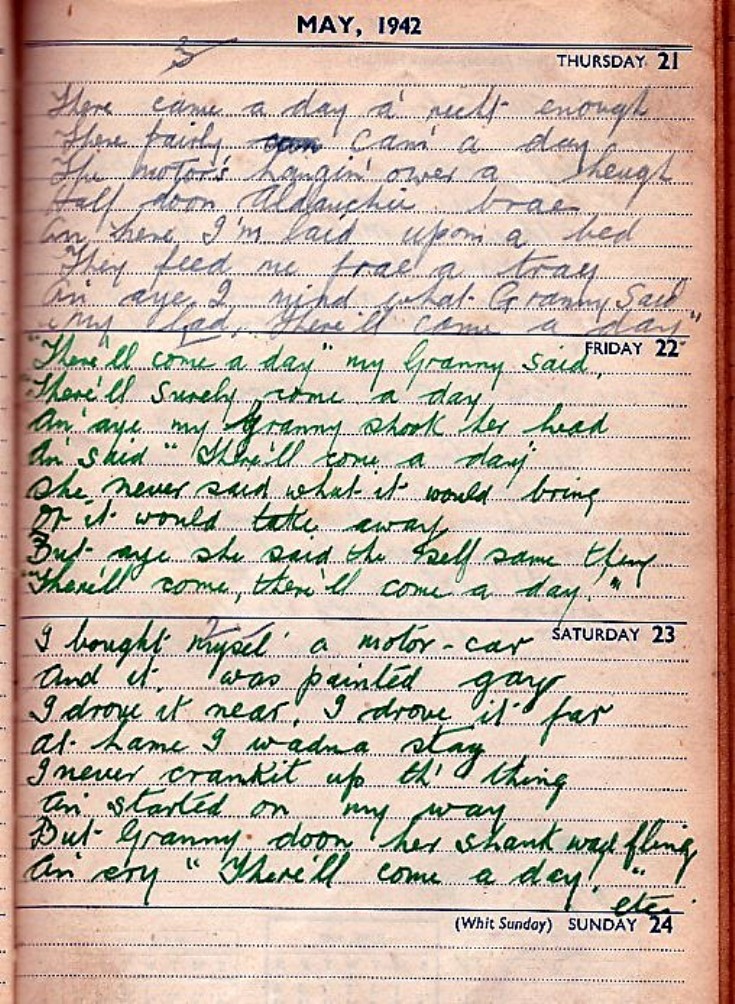 MAY, 1942
3
THURSDAY 21
There came a day a' richt enough
There fairly cam' a day
The motor's hangin' ower a sheugh
Half doon Aldauchie brae
An here I'm laid upon a bed
They feed me frae a tray
An' aye I mind what Granny said
"my lad, there'll come a day"
FRIDAY 22
"There'll come a day" my Granny said,
"There'll surely come a day
An' aye my Granny shook her head
An' said "There'll come a day"
She never said what it would bring
Or it would take away
But aye she said the self same thing
"There'll come, there'll come a day."
SATURDAY 23
2
I bought mysel' a motor-car
And it was painted gay
I drove it near, I drove it far
At hame I wadna stay
I never crankit up th' thing
An' started on my way
But Granny doon her shank wad fling
An' cry "There'll come a day."
etc.
(Whit Sunday) SUNDAY 24